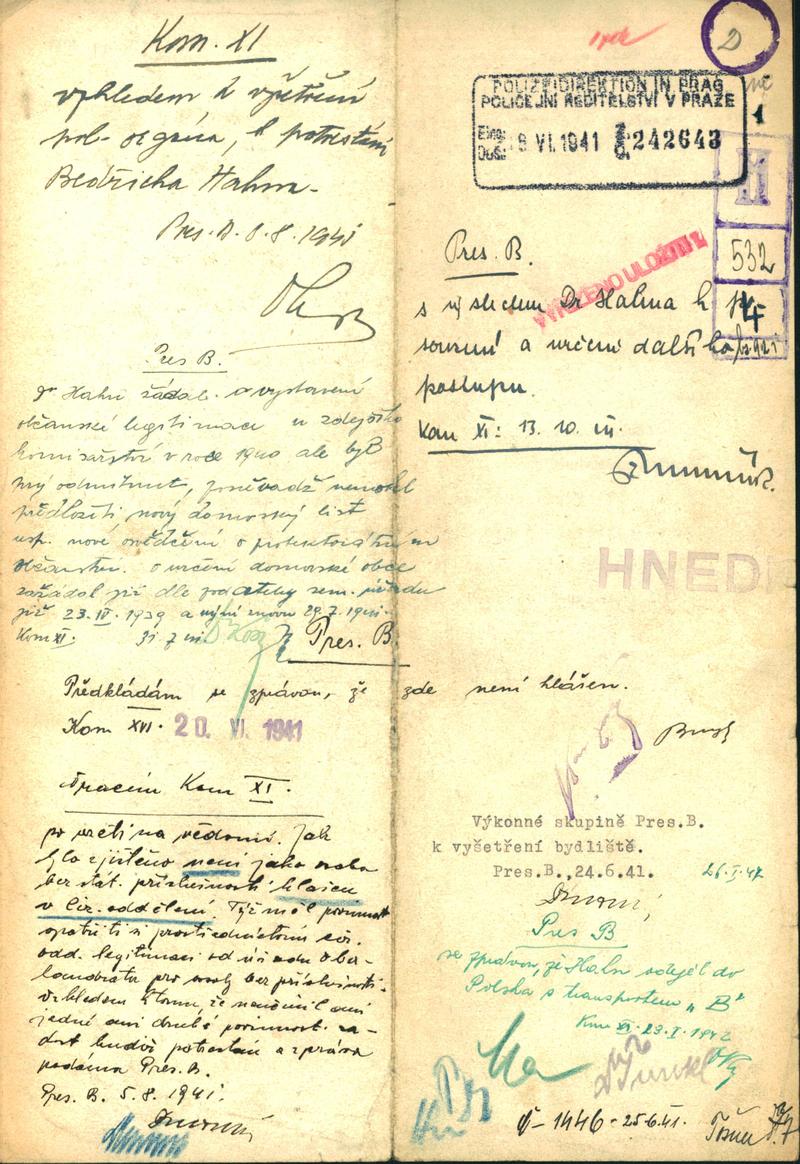 Kom. XI
vzhledem k vyšetření
pol. orgána, k potrestání
Bedřicha Hahna.
Pres. B. 8.8.1941
Pres B.
Dr Hahn žádal o vystavení
občanské legitimace u zdejšího
komisařství v roce 1940 ale byl
odmítnut, poněvadž nemohl
předložiti nový domovský list
resp. nové osvědčení o protektorátním
občanství. O určení domovské obce
zažádal již dle podatelny zem. úřadu
již 23.IV.1939 a nyní znovu 29.7.1941.
Kom XI. 31 7
Pres. B.
Předkládám se zprávou, že zde není hlášen.
Kom XVI. 20. VI. 1941
Vracím Kom XI.
po vzetí na vědomí. Jak
bylo zjištěno není jako osoba
bez stát. příslušnosti hlášen
v ciz. oddělení. Týž měl povinnost
opatřiti si prostřednictvím ciz.
odd. legitimaci od úřadu ober-
landráta pro osoby bez příslušnosti.
Vzhledem k tomu, že neučinil ani
jedné ani druhé povinnosti za-
dost budiž potrestán a zpráva
podána Pres. B.
Pres. B. 5.8.1941.
D
POLIZEIDIREKTION IN PRAG
POLICEJNÍ ŘEDITELSTVÍ V PRAZE
Eing.
Došlo: 9 VI. 1941 242643
1
532
4
Pres. B.
VYŘÍZENO ULOŽITI
s výslechem Dr Hahna k po
souzení a určení dalšího
postupu.
Kom XI: 13. 10.
HNED
Výkonné skupině Pres.B.
k vyšetření bydliště.
Pres.B.,24.6.41.
26.I.47
Pres B
se zprávou, že Hahn odejel do
Polska s transportem „B"
Kom XI. 23.I.1942
1446 - 25.6.41.